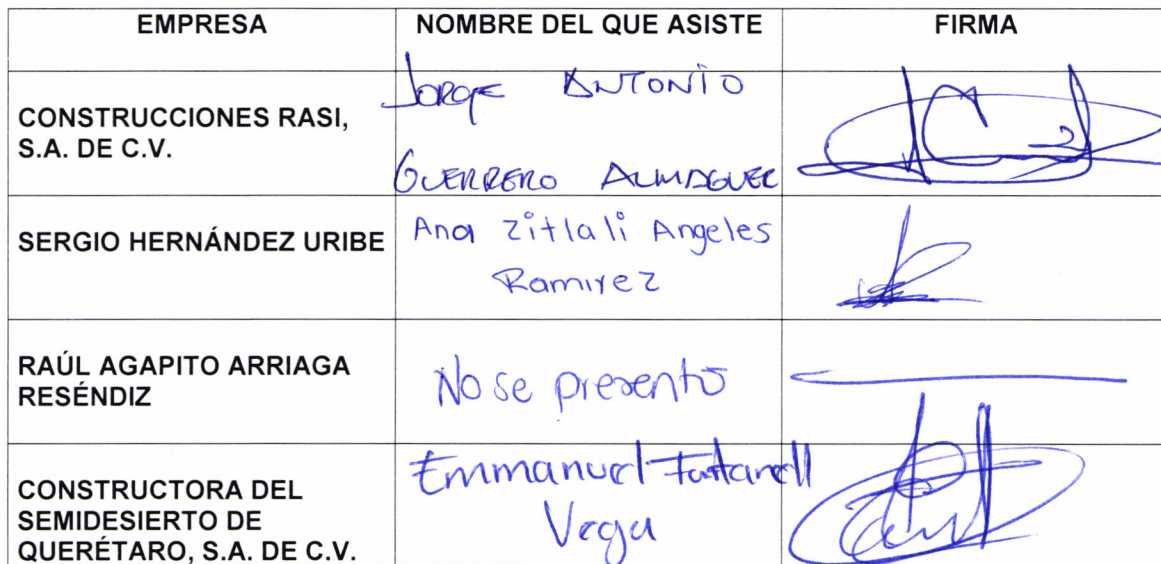 EMPRESA NOMBRE DEL QUE ASISTE FIRMA
CONSTRUCCIONES RASI,
S.A. DE C.V.
JORGE ANTONIO
GUERRERO ALMAGUER
SERGIO HERNÁNDEZ URIBE
Ana Zitlali Angeles
Ramirez
RAÚL AGAPITO ARRIAGA
RESÉNDIZ
No se presento
CONSTRUCTORA DEL
SEMIDESIERTO DE
QUERÉTARO, S.A. DE C.V.
Emmanuel
Vega